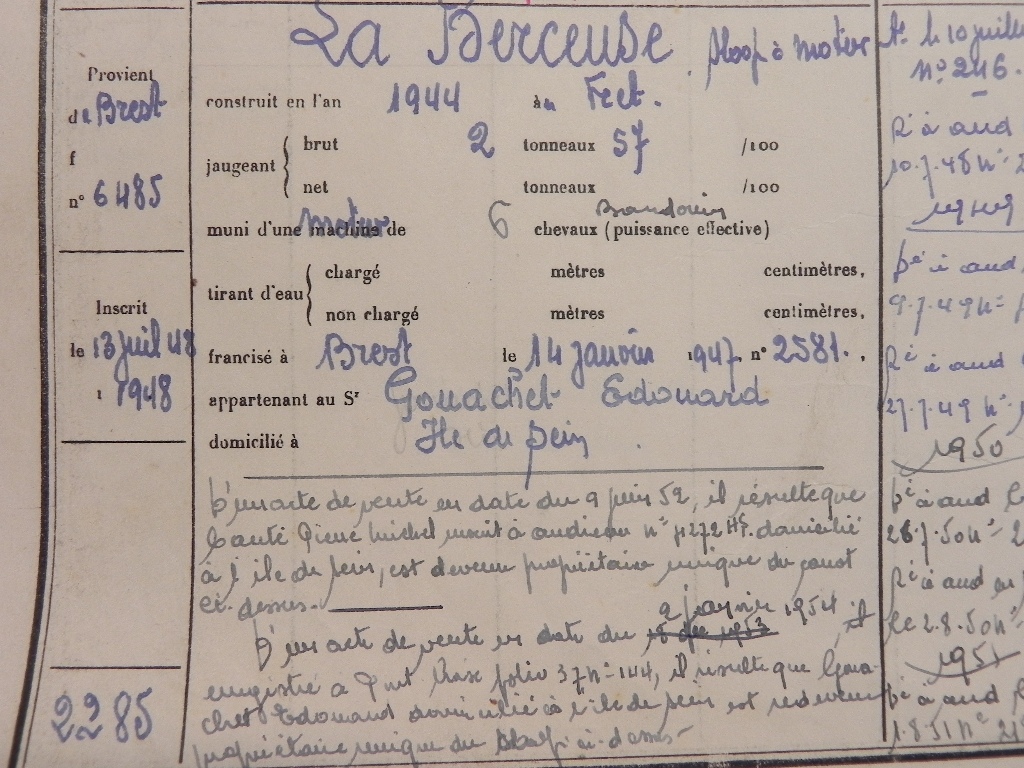 La Berceuse sloop à moteur
Provient
de Brest
f
n° 6485
Inscrit
le 13 juil 48
1 1948
2285
construit en l'an 1944 à au Fret.
jaugeant brut 2 tonneaux 57 /100
net tonneaux /100
Baudouin
muni d'une machine moteur de 6 chevaux (puissance effective)
tirant d'eau chargé mètres centimètres,
non chargé mètres centimètres,
francisé à Brest le 14 janvier 1947. n° 2581.,
appartenant au Sr Gouachet Edouard
domicilié à Ile de Sein
D'un acte de vente en date du 9 juin 52, il résulte que
Canté Pierre Michel inscrit à audierne n° domicilié
à l'île de Sein, est devenu propriétaire unique du canot
ci-dessus.
2 janvier 1954, il
D'un acte de vente en date du 18 dec 1953
enregistré à Pont Croix folio 37 n° 144, il résulte que Goua-
chet Edouard domicilié à l'île de Sein est redevenu
propriétaire unique du sloop ci-dessus
At. le 10 juillet
n° 246.
Ré à aud
10.7.48 n°
1949
Dé à aud
9.7.49 n°
Ré à aud
27.7.49 n°
1950
Dé à aud
26.7.50 n°
Ré à aud
le 2.8.50 n°
1951
Dé à aud
1.8.51 n°